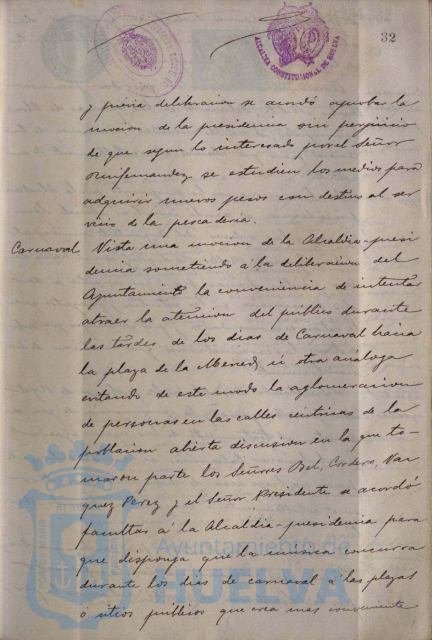 32
ALCALDIA CONSTITUCIONAL DE HUELVA
y previa deliberacion se acordó aprobar la
mocion de la presidencia sin perjuicio
de que segun lo interesado por el Señor
se estudien los medios para
adquirir nuevos pesos con destino al ser
vicio de la pescaderia.
Carnaval Vista una mocion de la Alcaldia-presi
dencia sometiendo á la deliberacion del
Ayuntamiento la conveniencia de intentar
atraer la atencion del público durante
las tardes de los dias de Carnaval hacia
la plaza de la Merced ú otra análoga
evitando de este modo la aglomeracion
de personas en las calles centricas de la
poblacion abierta discusion en la que to-
maron parte los Señores Bel, Cordero, Vaz
quez Perez y el Señor Presidente se acordó
facultar á la Alcaldia-presidencia para
que disponga que la música concurra
durante los dias de carnaval á las plazas
ó sitios públicos que crea mas conveniente
Ayuntamiento de
HUELVA